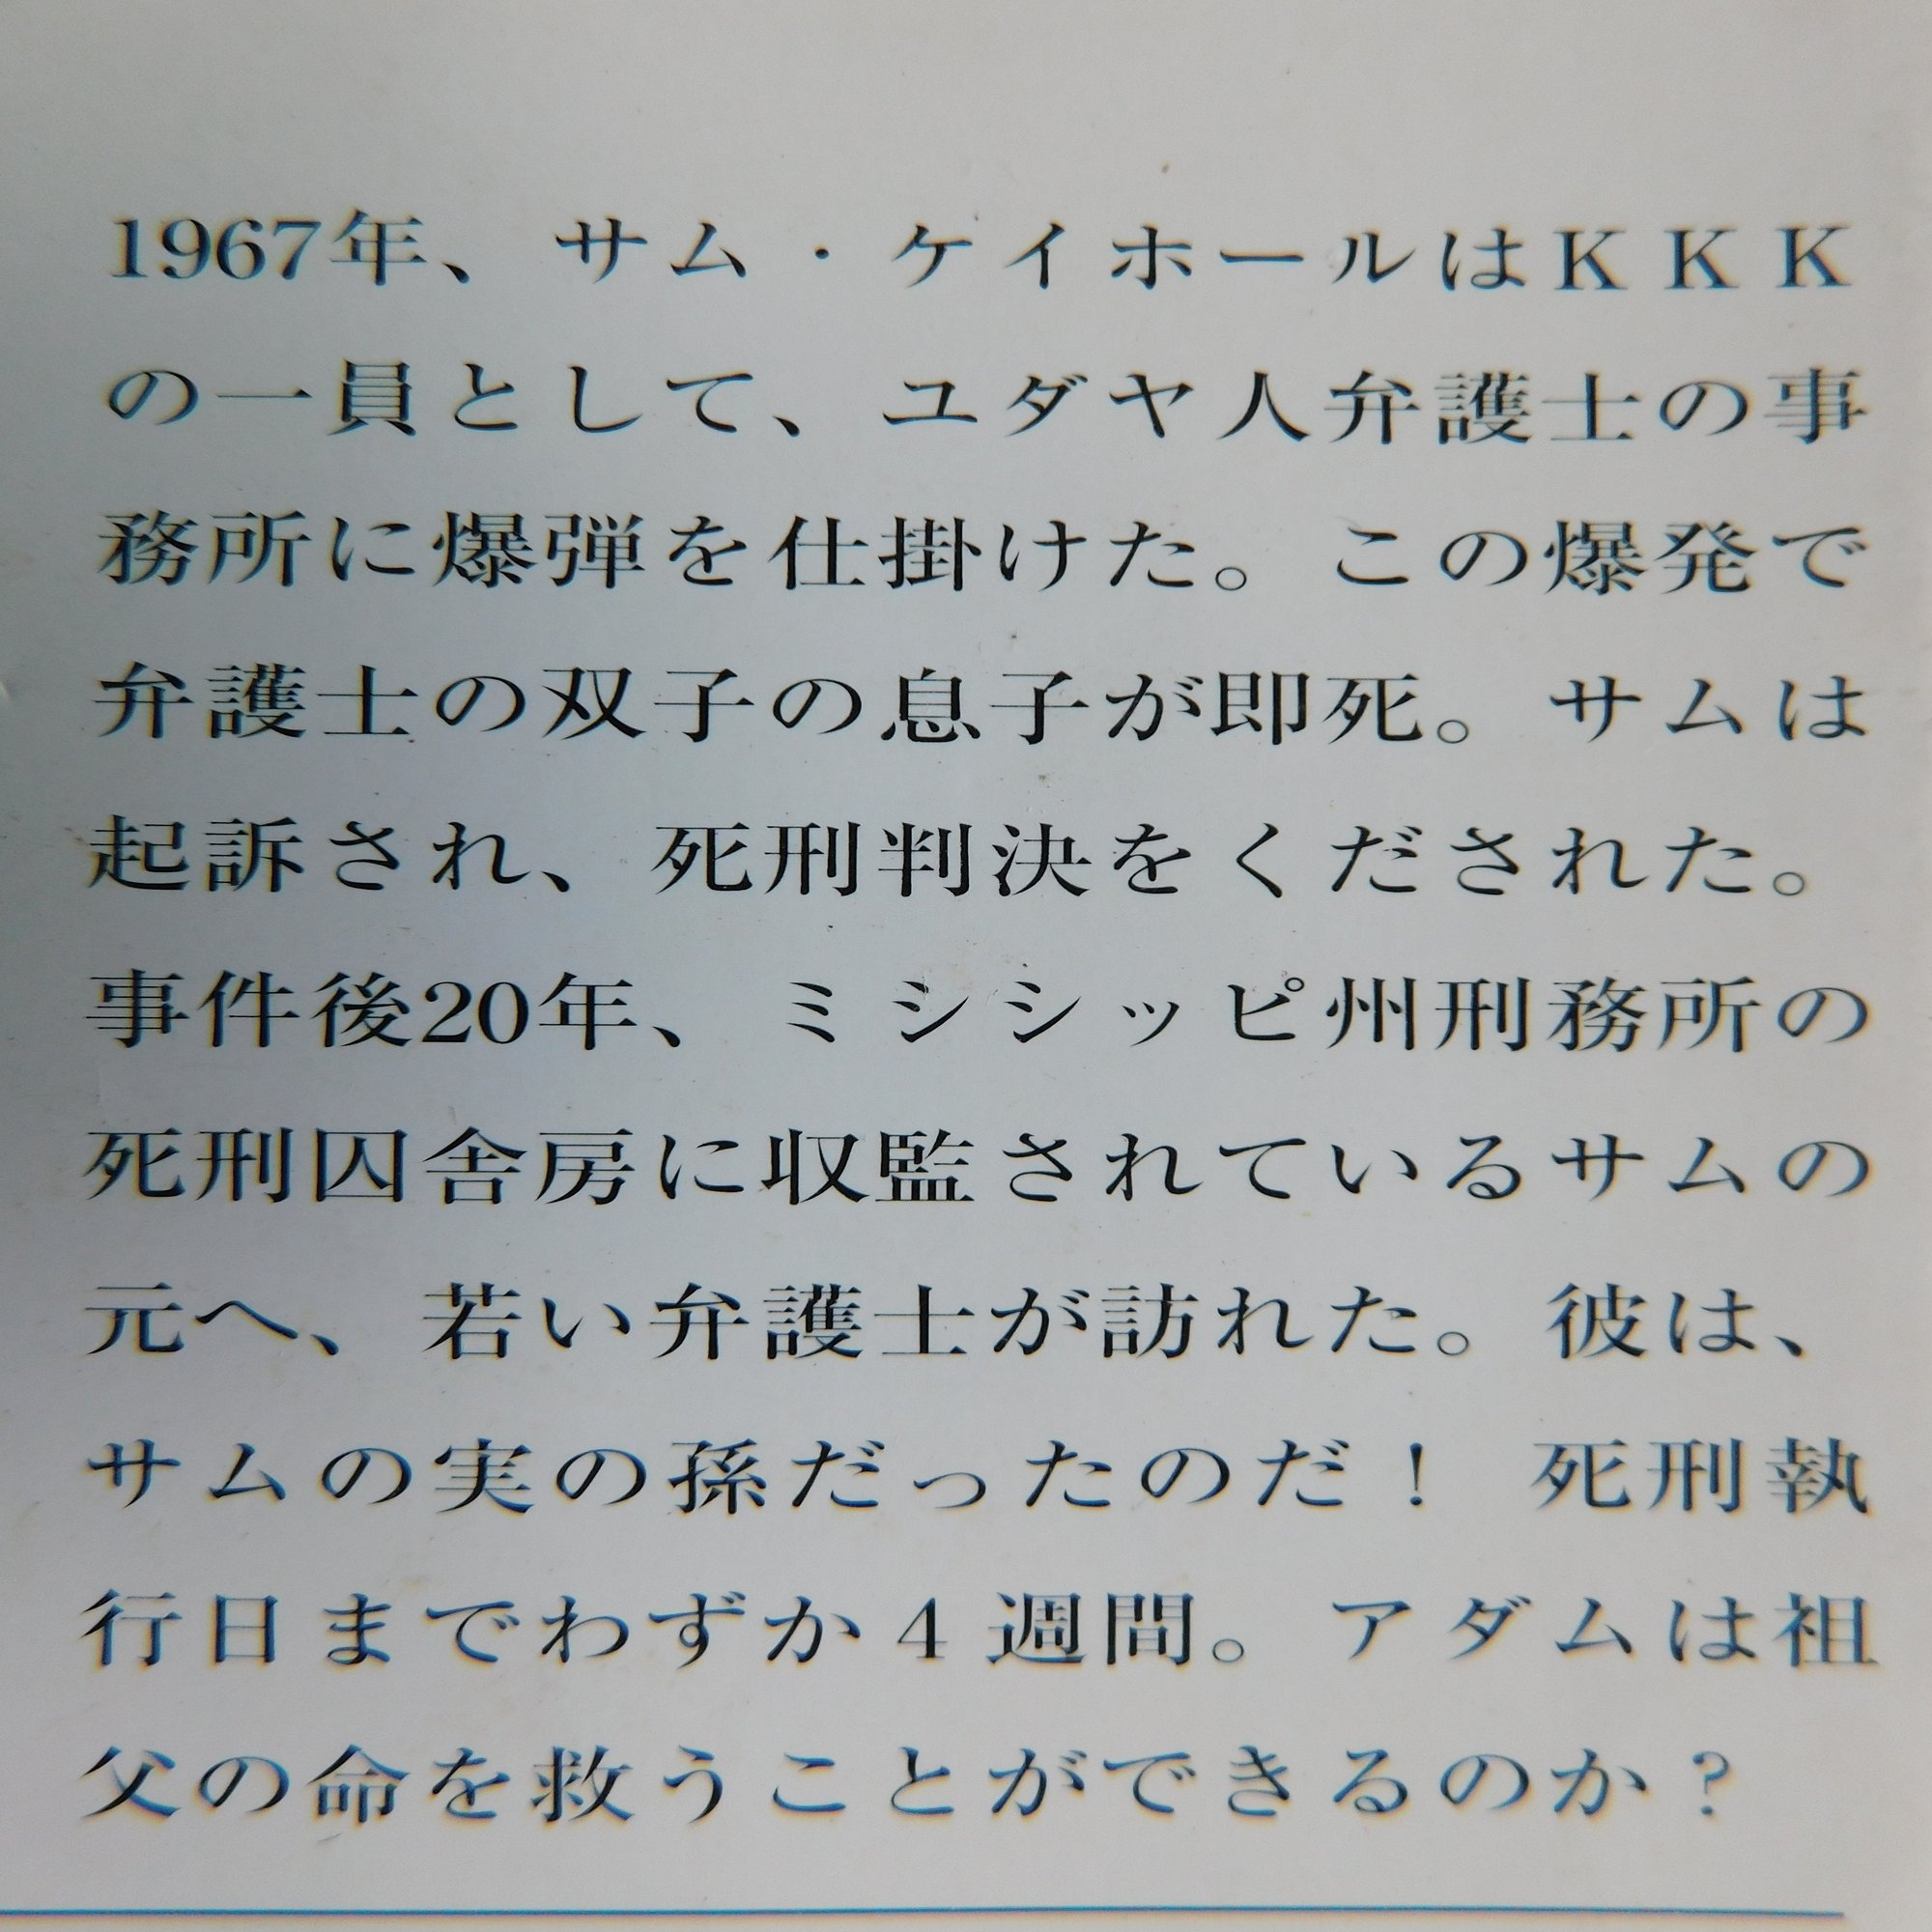 1967年、サム・ケイホールはＫＫＫ
の一員として、ユダヤ人弁護士の事
務所に爆弾を仕掛けた。この爆発で
弁護士の双子の息子が即死。サムは
起訴され、死刑判決をくだされた。
事件後20年、ミシシッピ州刑務所の
死刑囚舎房に収監されているサムの
元へ、若い弁護士が訪れた。彼は、
サムの実の孫だったのだ！　死刑執
行日までわずか４週間。アダムは祖
父の命を救うことができるのか？